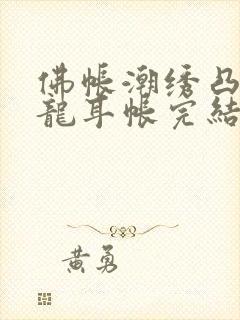 佛帐潮绣凸
龍耳帐完結
黄勇